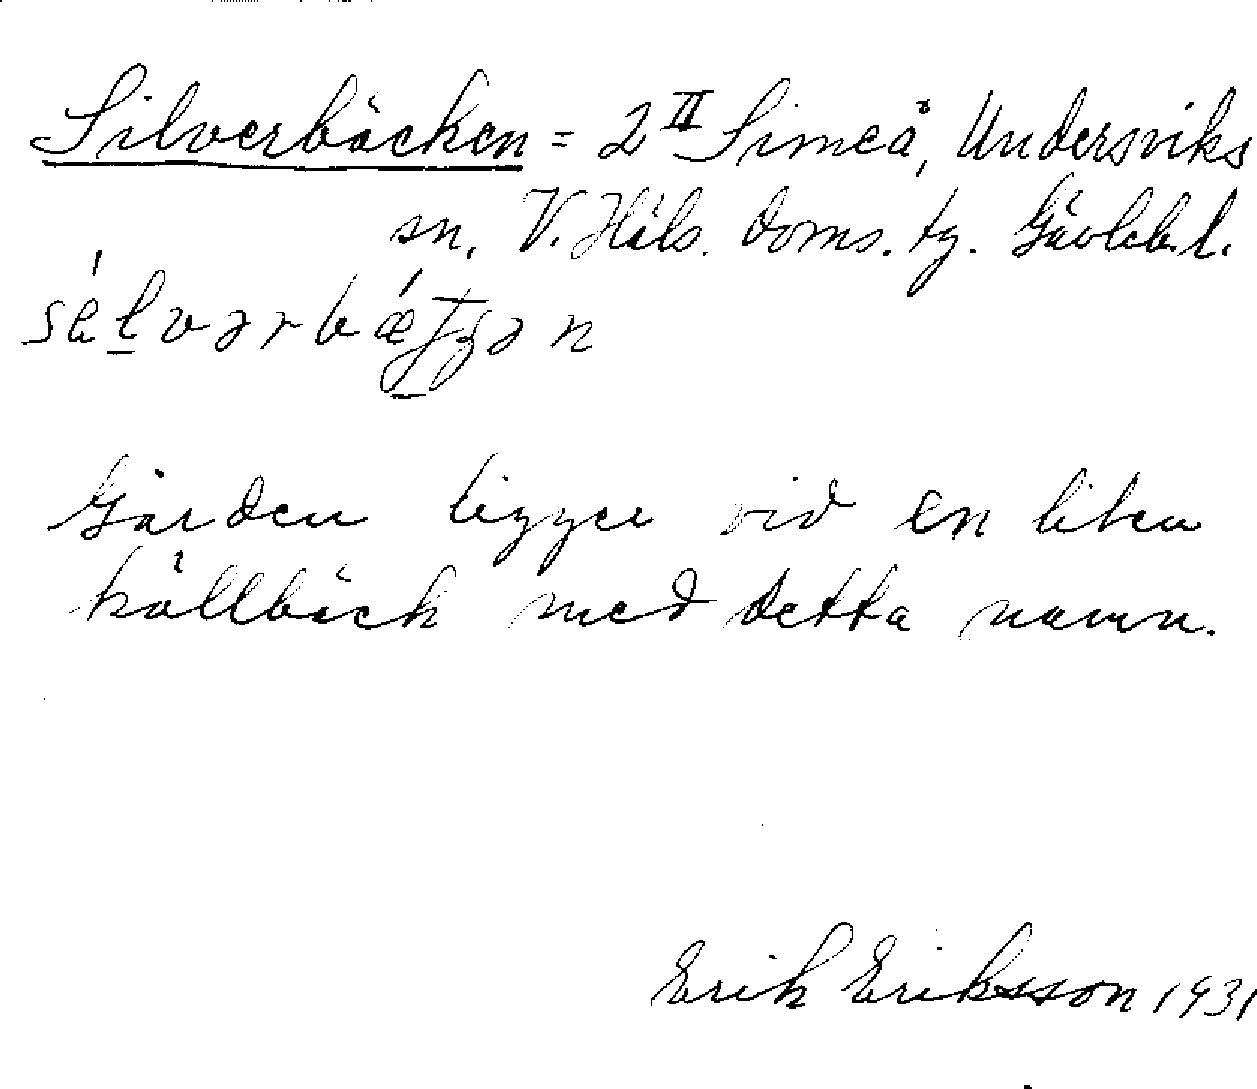 Silverbäcken = 2 II Simeå, Undersviks
sn, V. Häls. doms. tg. Gävleb.l.
Gården ligger vid en liten
källbäck med detta namn.
Erik Eriksson 1931